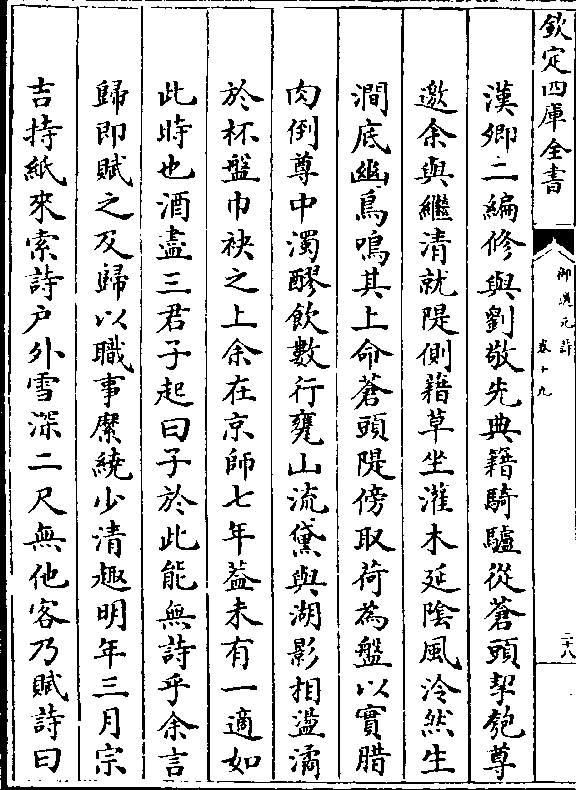 欽定四庫全書
御選元詩
卷十九
二十八
漢卿二編修與劉敬先典籍騎驢從蒼頭挈匏尊
邀余與繼清就隄側藉草坐灌木延陰風泠然生
澗底幽鳥鳴其上命蒼頭隄傍取荷為盤以實腊
肉倒尊中濁醪飲數行甕山流黛與湖影相盪潏
於杯盤巾袂之上余在京師七年蓋未有一適如
此時也酒盡三君子起曰子於此能無詩乎余言
歸即賦之及歸以職事縻繞少清趣明年三月宗
吉持紙來索詩戶外雪深二尺無他客乃賦詩曰